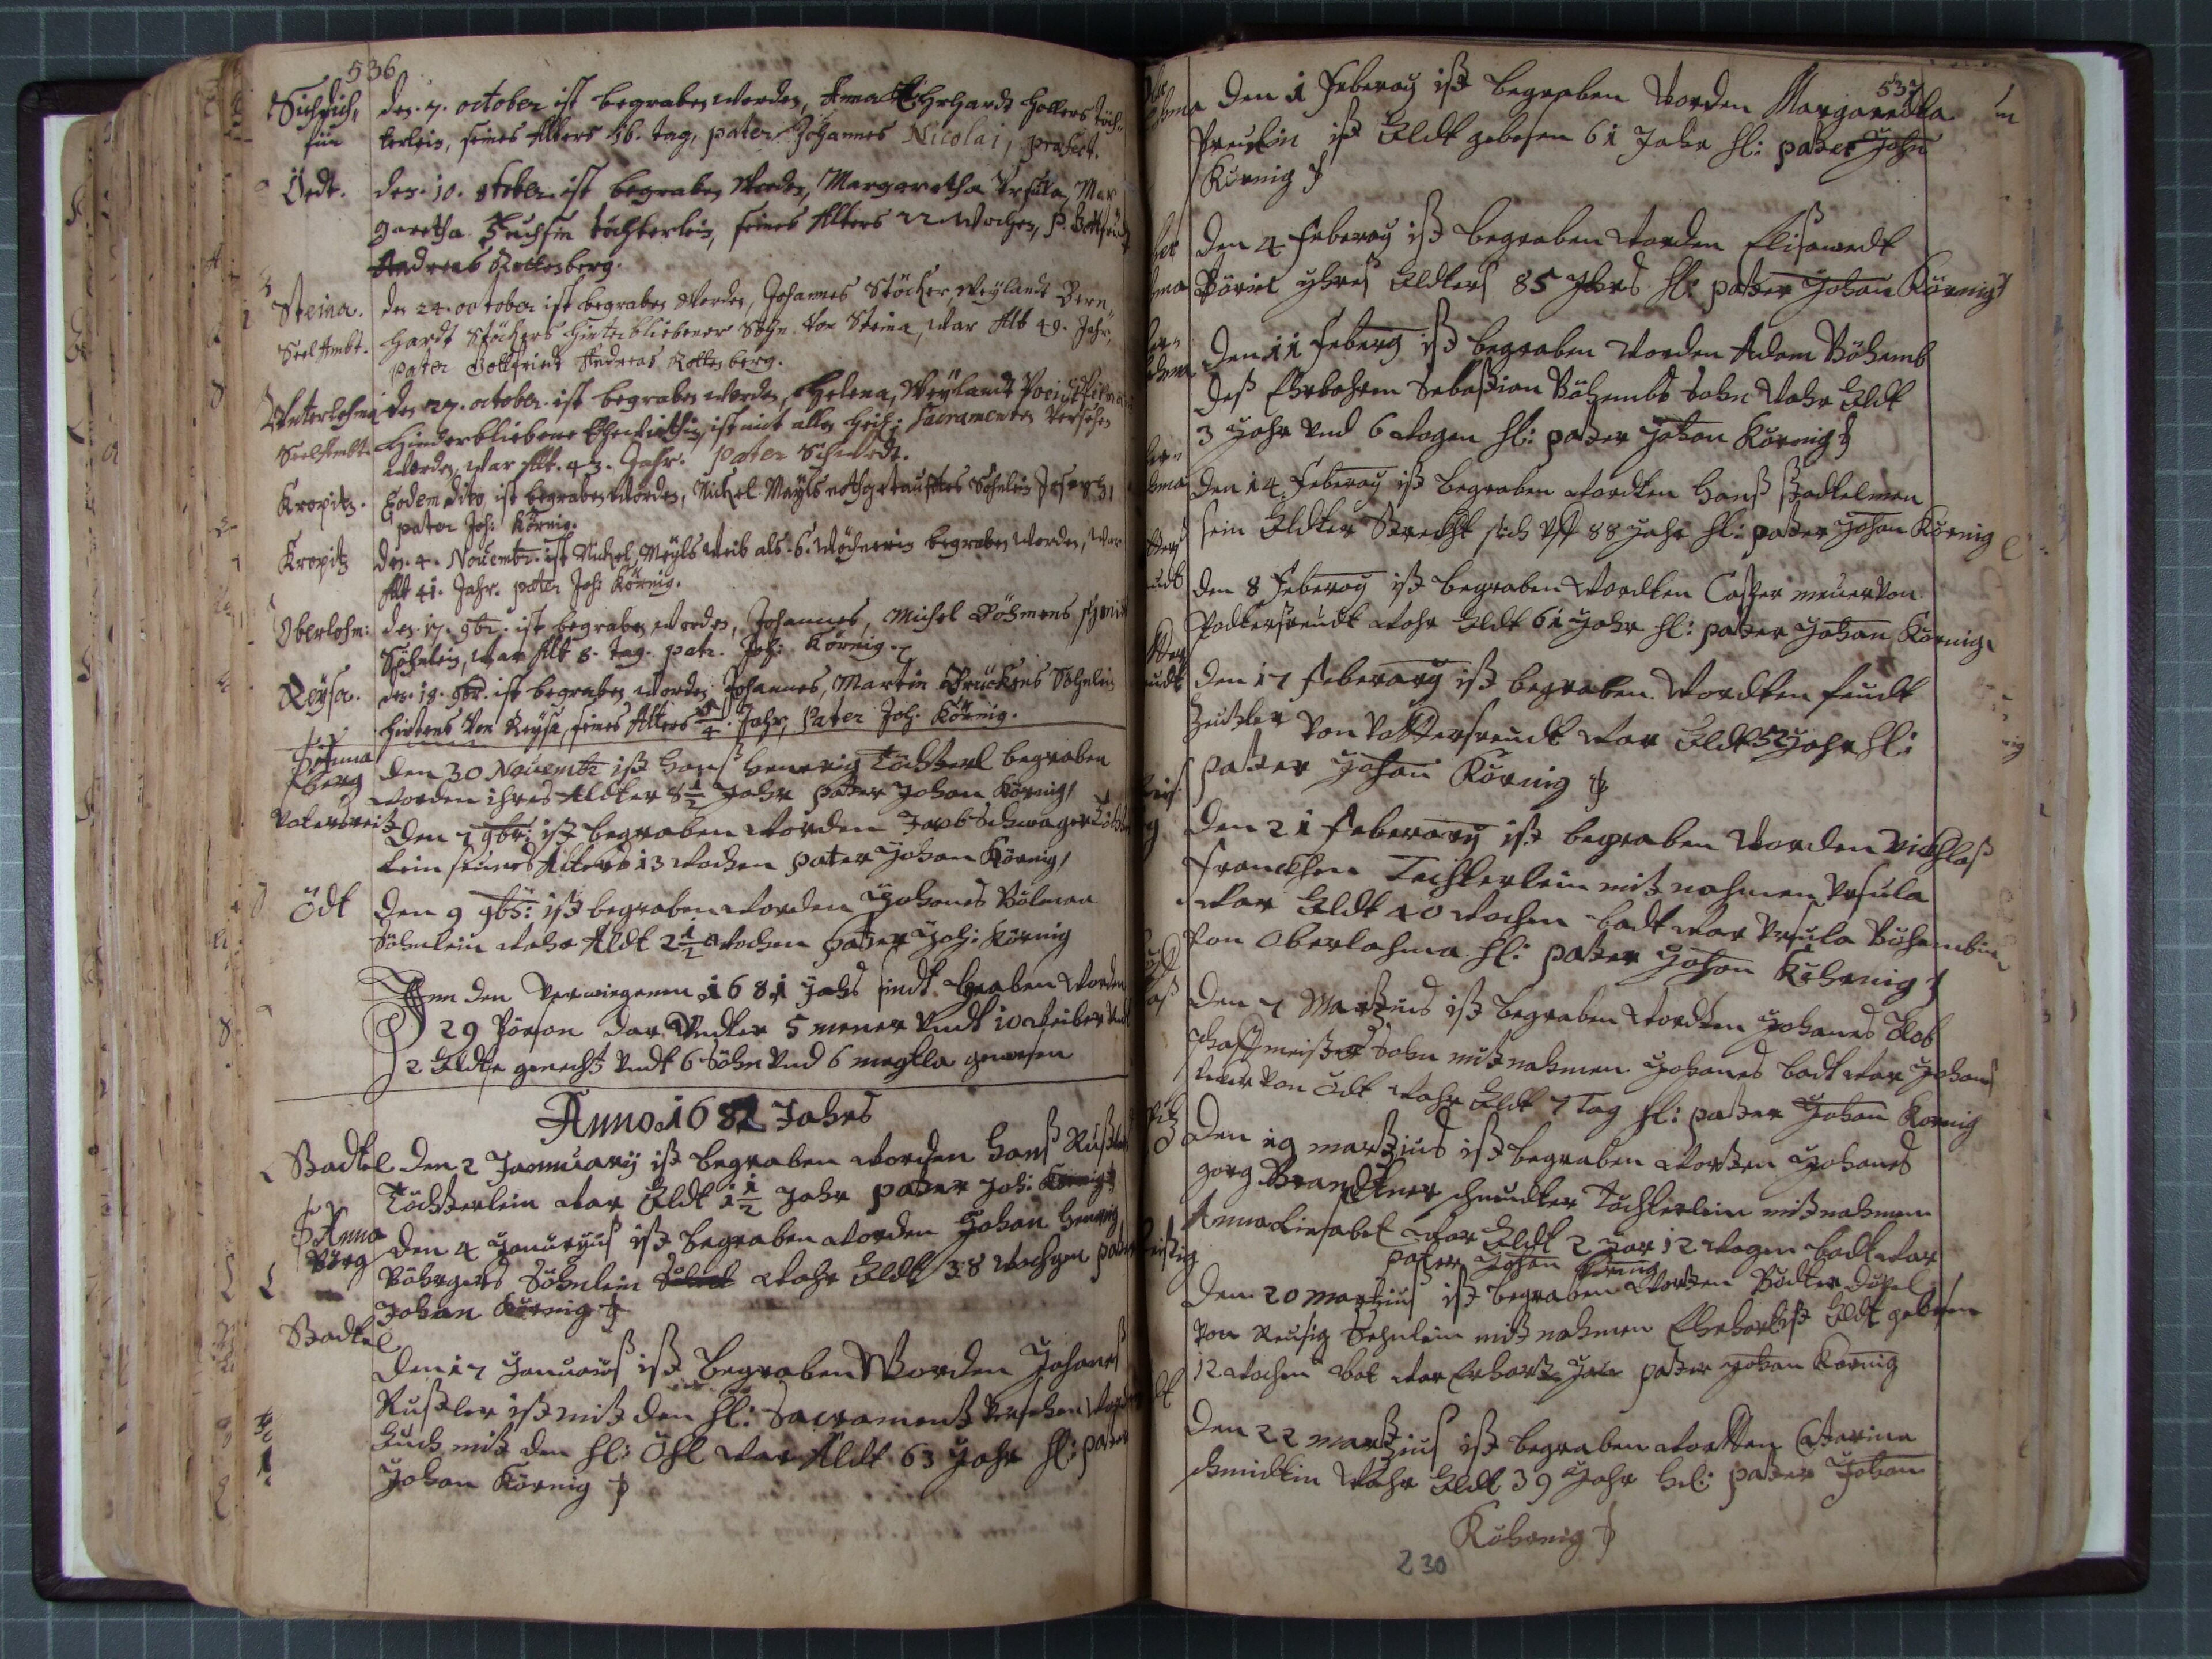 536
Sichdich,
für
den. 7. october ist begraben worden, Anna Ehrhardt Hollers Töch-
terlein, seines Alters 36. tag, pater Johannes Nicolai, præfect.
Oedt.
den. 10. october ist begraben worden, Margaretha Ursula, Mar
garetha Fuchsin töchterlein, seines Alters 22 wochen, P. Gottfridt
Andreas Rottenberg.
Steina.
den 24. october ist begraben worden, Johannes Stöcker, weylandt Bern
Seel Ambt.
hardt Stöckers hinterbliebener Sohn von Steina, war Alt 49. Jahr,
pater Gottfriedt Andreas Rottenberg.
Unterlohma
den 27. october ist begraben worden, Helena, Weylandt
Seel Ambt.
Hinderbliebene Ehewirthin, ist mit allen heil: Sacramenten versehen
worden, war Alt. 43. Jahr. pater Schmidt.
Kropitz.
Eodem dito ist begraben worden, Michel Mayls nothgetaufftes Söhnlein Joseph,
pater Joh: Körnig.
Kropitz
den. 4. Novembr. ist Michel Meyls weib als 6. wöchnerin begraben worden, war
Alt 41. Jahr. pater Joh: Körnig.
Oberlohm:
den. 17. 9br. ist begraben worden, Johannes, Michel Böhmens
Söhnlein, war Alt 8. tag. patr. Joh: Körnig.
Reysa.
den. 19. 9br. ist begraben worden Johannes, Martin Brückens Söhnlein
hirtens von Reysa, seines Alters 5/4. Jahr, Pater Joh. Körnig.
S Anna
berg
den 30 Novembr ist Hanß Henerig Töchterl begraben
worden ihres Aldter 8 1/2 Jahr pater Johan Körnig
den 7 9br: ist begraben worden Jacob Schwager Töcht
lein seines Alters 13 wochen pater Johan Körnig
Ödt
den 9 9br: ist begraben worden Johanes Bölman
Söhnlein wahr Aldt 2 1/2 wochen pater Joh: Körnig
Inn den verwiegenen 1681 Jahs sindt begraben worden
29 Pörson dar undter 5 mener undt 10 weiber und
2 Eldte gemecht undt 6 Söhn und 6 megtla gewesen
Anno 1682 Jahrs
Stadtel
den 2 Jannuary ist begraben worden Hanß Rustler
Töchterlein war Eldt 1 1/2 Jahr pater Joh: Körnig
S Anna
Börg
den 4 Januryus ist begraben worden Johan Henrig
Böhrgers Söhnlein wahr Eldt 38 wochgen pater
Johan Körnig
Stadtel
den 17 Januaius ist begraben Worden Johanes
Rustler ist mit den hl: Sacrament versehen worden
Auch mit den hl: Öhl war Aldt 63 Jahr hl: pater
Johan Körnig
537
den 1 Feberay ist begraben worden Margaredta
ist Eldt gebesen 61 Jahr hl: pater Joha
Körnig
den 4 Feberay ist begraben worden Elisawedt
yhres Eldters 85 Jhrs hl: pater Johan Körnig
den 11 Feberg ist begraben worden Adam Böhemb
deß Ehrbahren Sebastian Böhembs sohn wahr Eldt
3 Jahr und 6 wogen hl: pater Johan Körnig
den 14 Feberay ist begraben wordten Hanß Stadtelman
sein Eldter Streckht sich uff 88 Jahr hl: pater Johan Körnig
den 8 Feberay ist begraben wordten Casper meuer von
wahr Eldt 61 Jahr hl: pater Johan Körnig
den 17 Feberary ist begraben wordten
von war Eldt 52 Jahr hl:
pater Johan Körnig
den 21 Feberary ist begraben worden Nichlaß
Franckhen Techterlein mit nahmen Ursula
war Eldt 40 wochen badt war Ursula Böhembin
von Oberlahma hl: pater Johan Kührnig
den 7 Martzius ist begraben wordten Johanes
schaffmeister Sohn mit nahmen Johanes badt war Johans
von Ödt wahr Eldt 7 Tag hl: pater Johan Kornig
den 19 martzius ist begraben worten Johanes
gorg Brandtner schneudter Tochterlein mit nahmen
Anna Liesabet war Eldt 2 Jar 12 wogen badt war
pater Johan Körnig
dem 20 martzius ist begraben worten
von Reusig Sehnlein mit nahmen Ehrhardt ist Eldt gebesen
12 wochen bat war Erhart pater Johan Kornig
den 22 martzius ist begraben wortten Caterina
schmidtin wahr Eldt 39 Jahr hl: pater Johan
Kührnig
230